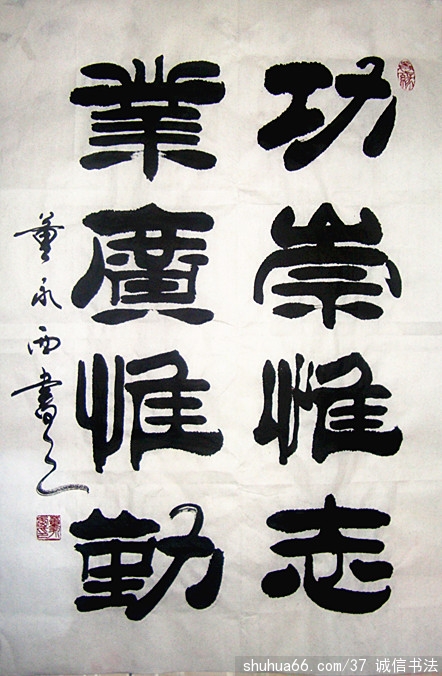 功崇惟志
業廣惟勤
董永西書之
shuhua66.com/37 诚信书法